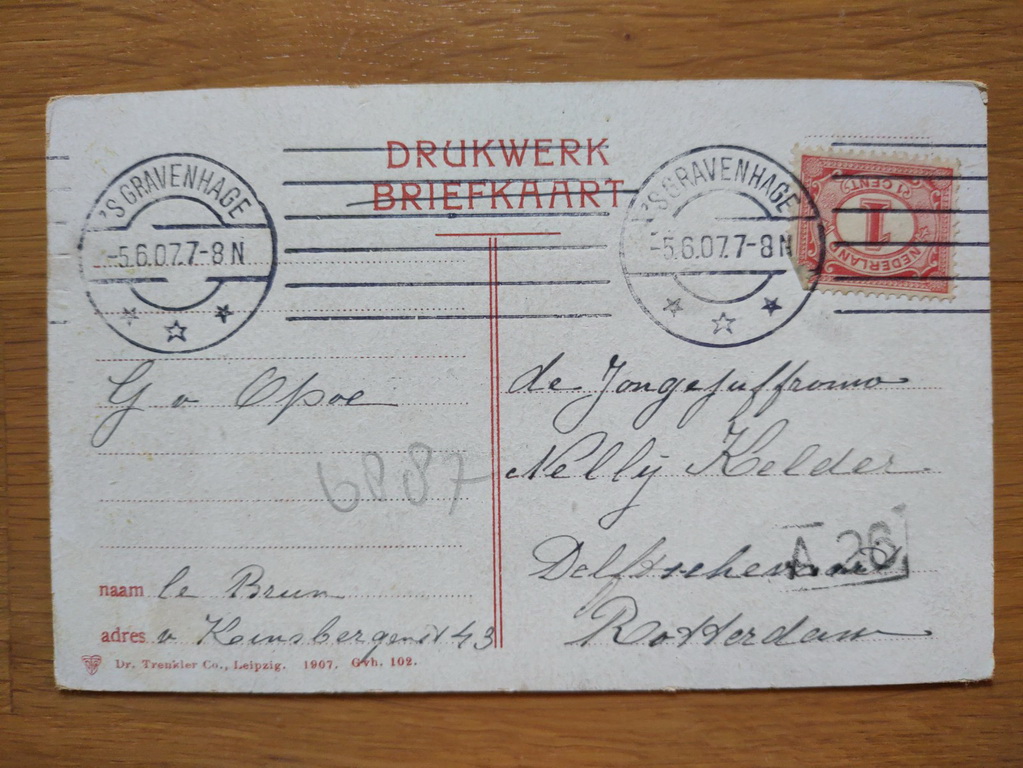 DRUKWERK
BRIEFKAART
'SGRAVENHAGE
-5.6.07.7-8 N
'SGRAVENHAGE
-5.6.07.7-8 N
NEDERLAND
1
(1 CENT)
G v Opoe
6887
naam le Brun
adres v Kinsbergenst 43
Dr. Trenkler Co., Leipzig. 1907. Gvh. 102.
de Jongejuffrouw
Nelly Kelder
A 26
Rotterdam